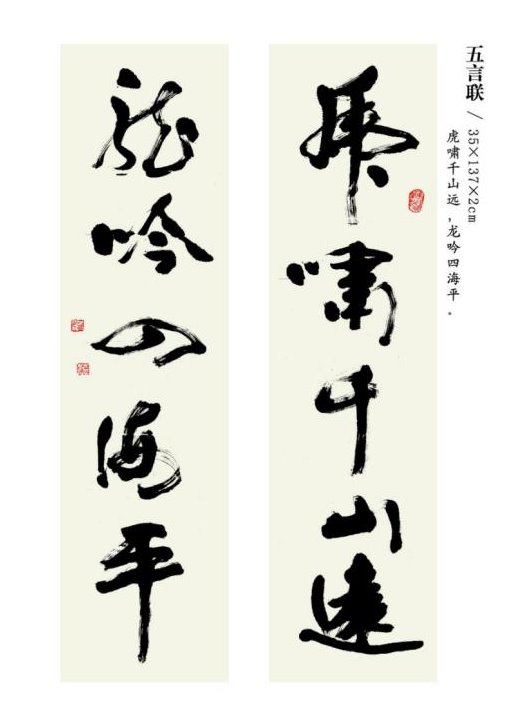 五言联 / 35×137×2cm
虎啸千山远，龙吟四海平。
虎嘯千山遠
龍吟四海平